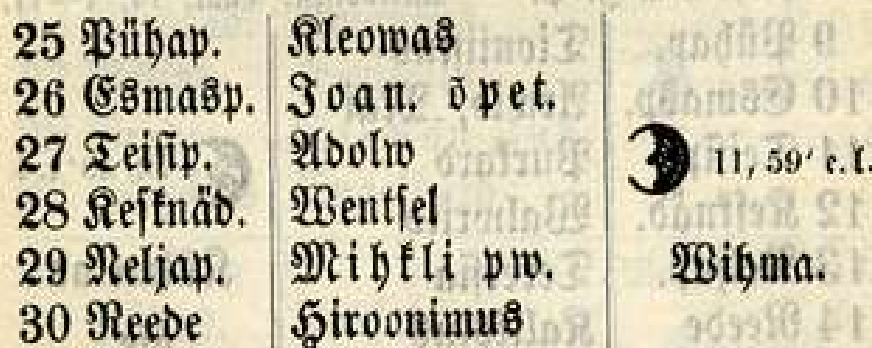 25 Pühap. Kleowas
26 Esmasp. Joan. õpet.
27 Teisip. Adolw 11, 59' e.l.
28 Kesknäd. Wentsel
29 Neljap. Mihkli pw. Wihma.
30 Reede Hiroonimus